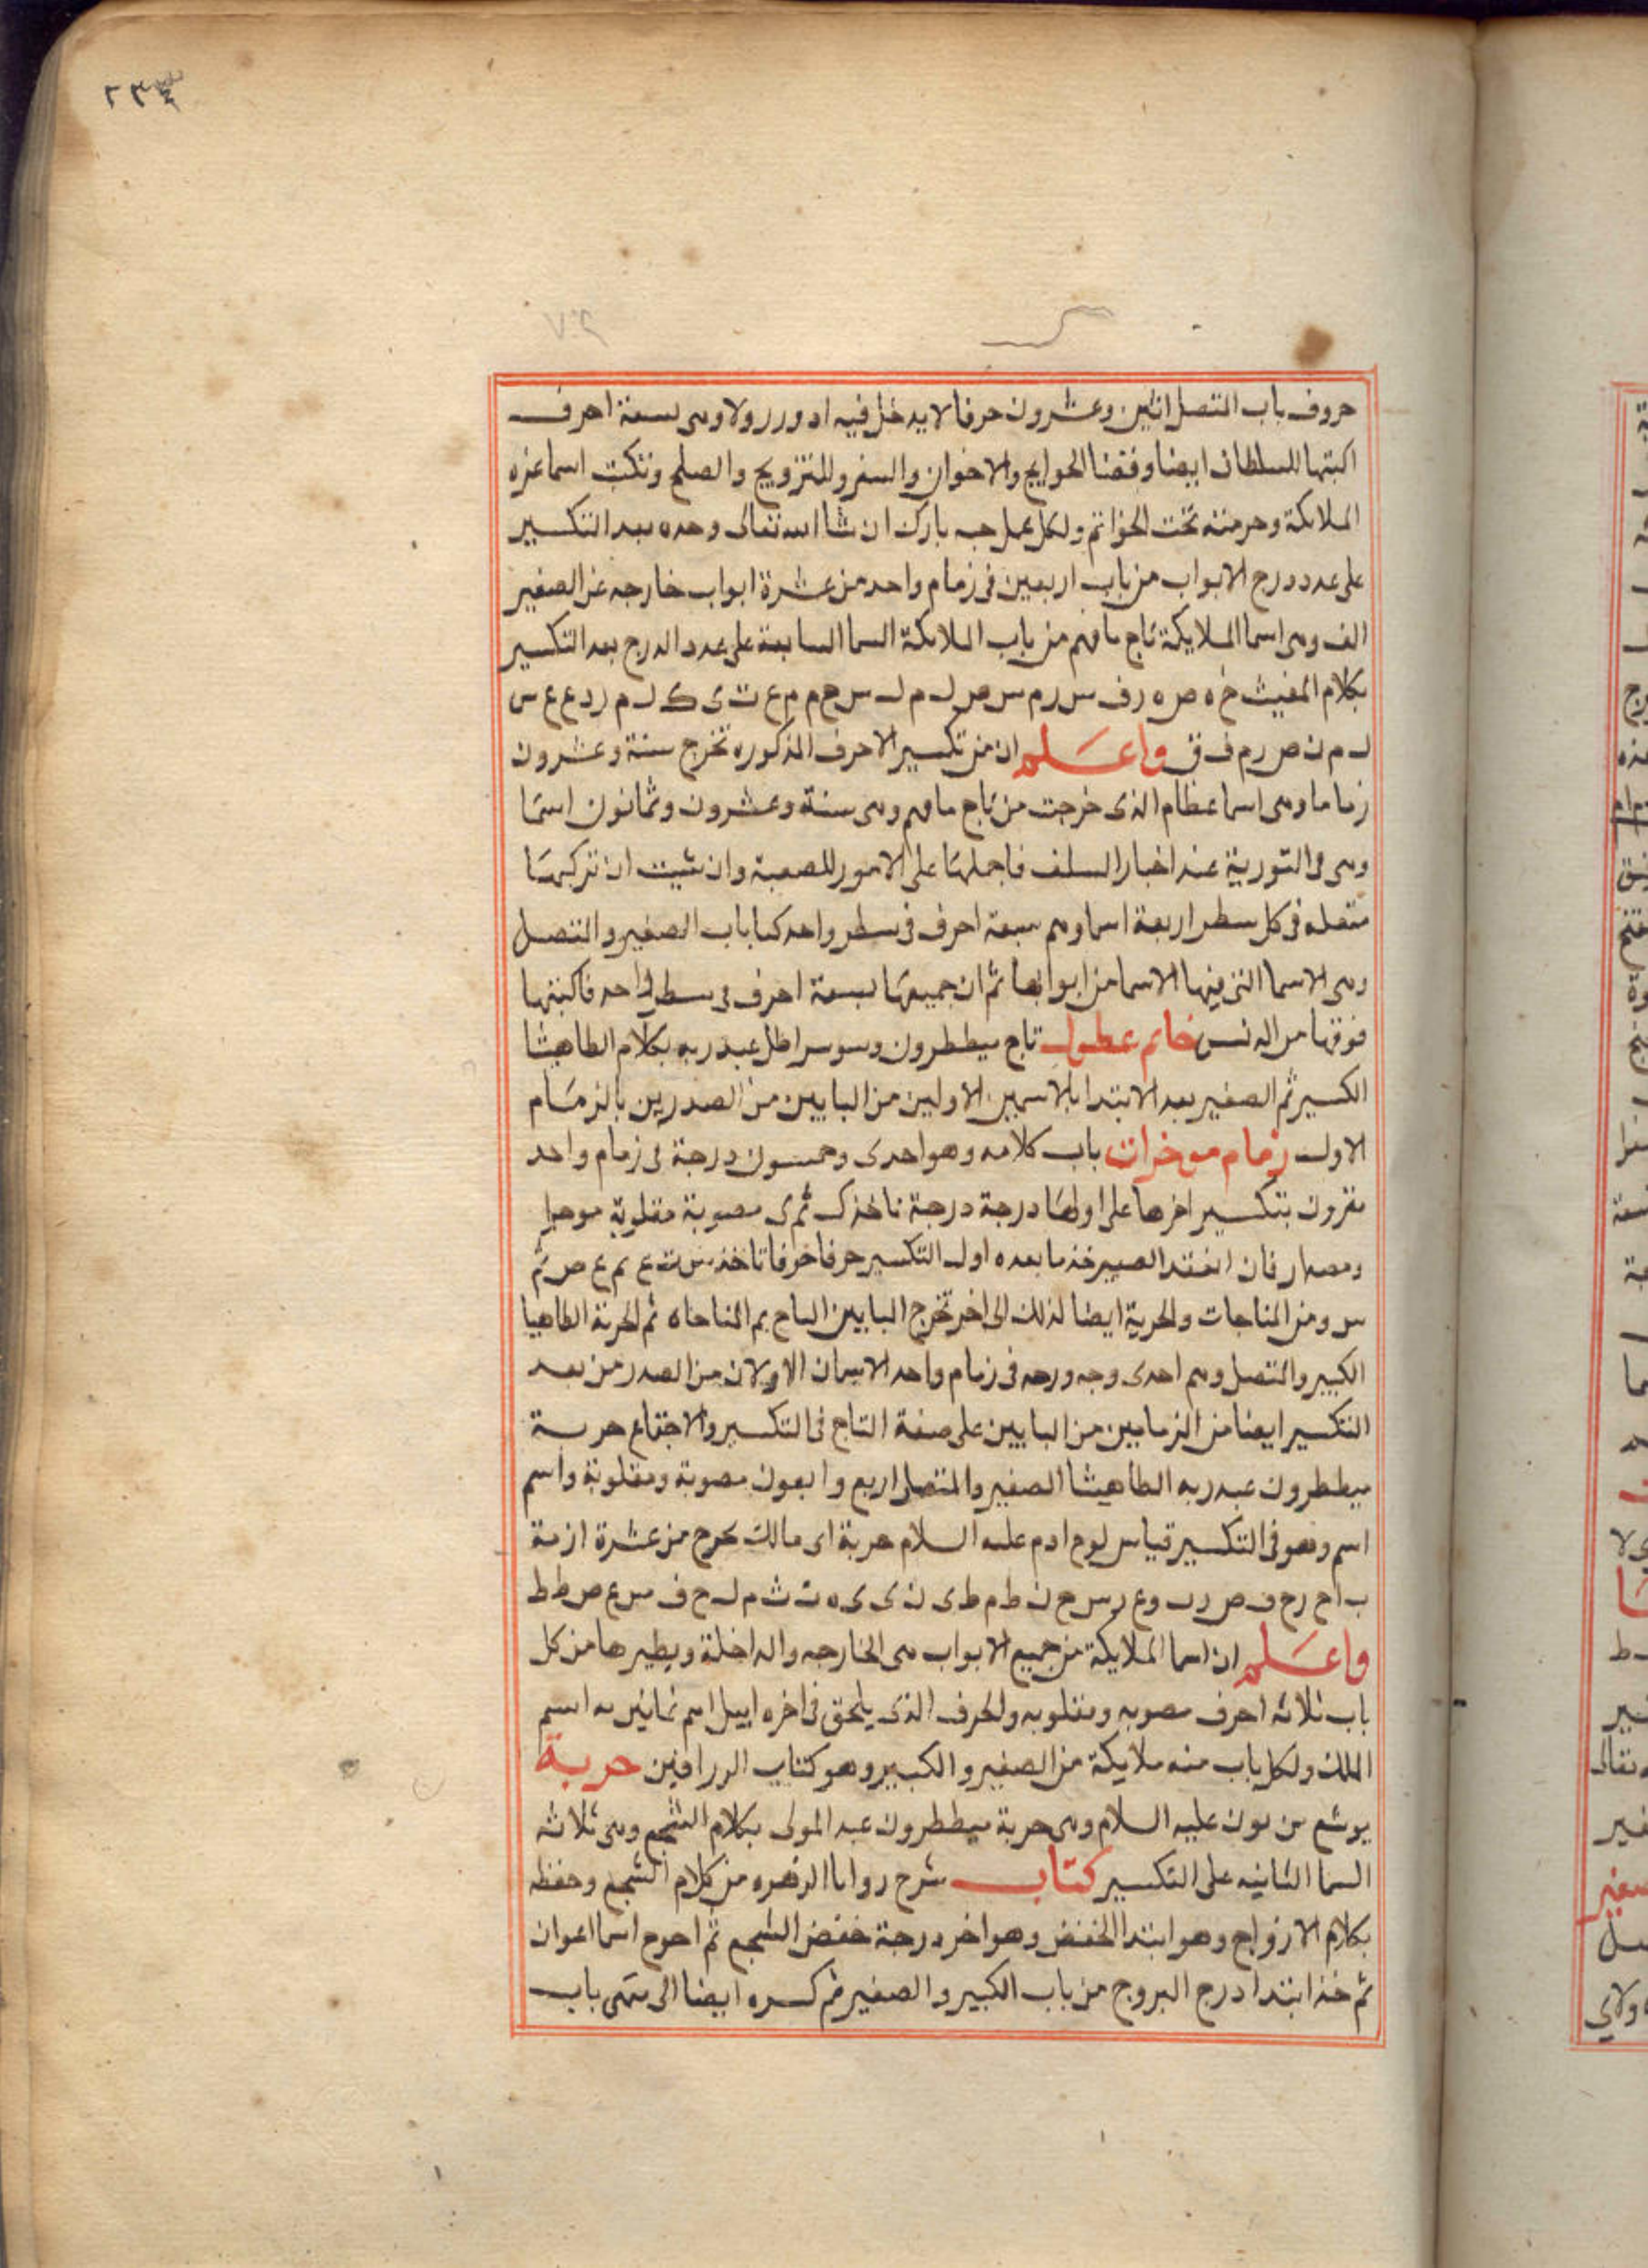 ٢٣٣
٧٠٢
حروف باب المتصل اثنين وعشرون حرفا لا يدخل فيه ا د و ر ز ولا وهى سبعة احرف
اكتبها للسلطان ايضا وقضا الحوايج والاخوان والسفر وللتزويج والصلح وتكتب اسما عزه
الملائكة وحرمته تحت الخواتم ولكل عمل جيه بارك ان شا الله تعالى وحده بعد التكسير
على عدد درج الابواب من باب اربعين فى زمام واحد من عشرة ابواب خارجه عن الصغير
الف وهى اسما الملايكة تاج مافهم من باب الملائكة السما السابعة على عدد الدرج بعد التكسير
بكلام المغيث خ ه ص ه ر ف س ر م س ص ل م ل س ح م م ع ت ى ك ل م ر د ع ع س
ل م ن ص ر م ف ق واعلم ان من تكسير الاحرف المذكوره تخرج ستة وعشرون
زماما وهى اسما عظام الذى خرجت من تاج مافهم وهى ستة وعشرون وثمانون اسما
وهى فى التورية عند اخبار السلف فاحملها على الامور للصعبة وان شيت ان تركبها
متصله فى كل سطر اربعة اسما وهم سبعة احرف فى سطر واحد كتاباب الصغير والمتصل
وهى الاسما التى فيها الاسما من ابوابها ثم ان جميعها سبعة احرف فى سطر واحد فاكتبها
فوقها خاتم عطول تاج ميططرون عبد ربه بكلام الطاهيثا
الكسير ثم الصغير بعد الابتدا بالاسمين الاولين من البابين من الصدرين بالزمام
الاول زمام موخرات باب كلامه وهو احدى وخمسون درجة فى زمام واحد
مقرون بتكسير اخرها على اولها درجة درجة تاخذ ك ثم ى مصوبة مقلوبة
فان انعقد الصبير خذ ما بعده اول التكسير حرفا حرفا تاخذ س ت ع م ع ص ثم
س ومن المناجات والحربة ايضا لذلك الى اخر تخرج البابين ثم الحربة الطاهيا
الكبير والمتصل وهم احدى وجه ودرجه فى زمام واحد الاسمان الاولان من الصدر من بعد
التكسير ايضا من الزمامين من البابين على صفة التاج فى التكسير والاجتماع حربة
ميططرون عبد ربه الطاهيثا الصغير والمتصل اربع واربعون مصوبة ومقلوبة واسم
اسم وهو فى التكسير قياس لوح ادم عليه السلام حربة اى مالك يخرج من عشرة ازمة
ب ا ح ر ح ف ص ر ب و ع ر س ح ن ط م ط ى ن ى ى ه ت ث م ل ح ف س ع ص ط ط
واعلم ان اسما الملايكة من جميع الابواب هى الخارجه والداخلة ويطيرها من كل
باب ثلاثه احرف مصوبه ومقلوبه والحرف الذى يلحق فى اخره اييل اسم ثمانين به اسم
الملك ولكل باب منه ملايكة من الصغير والكبير وهو كتاب الررافين حربة
يوشع بن نون عليه السلام وهى حربة ميططرون عبد المولى بكلام الشجع وهى ثلاثه
السما الثانيه على التكسير كتاب شرح روايا الزهره من كلام الشجع وحفظه
بكلام الازواج وهو ابتدا الخفض وهو اخر درجة خفض الشجع ثم احرج اسما اعوان
ثم خذ ابتدا درج البروج من باب الكبير والصغير ثم كسره ايضا الى منتهى باب